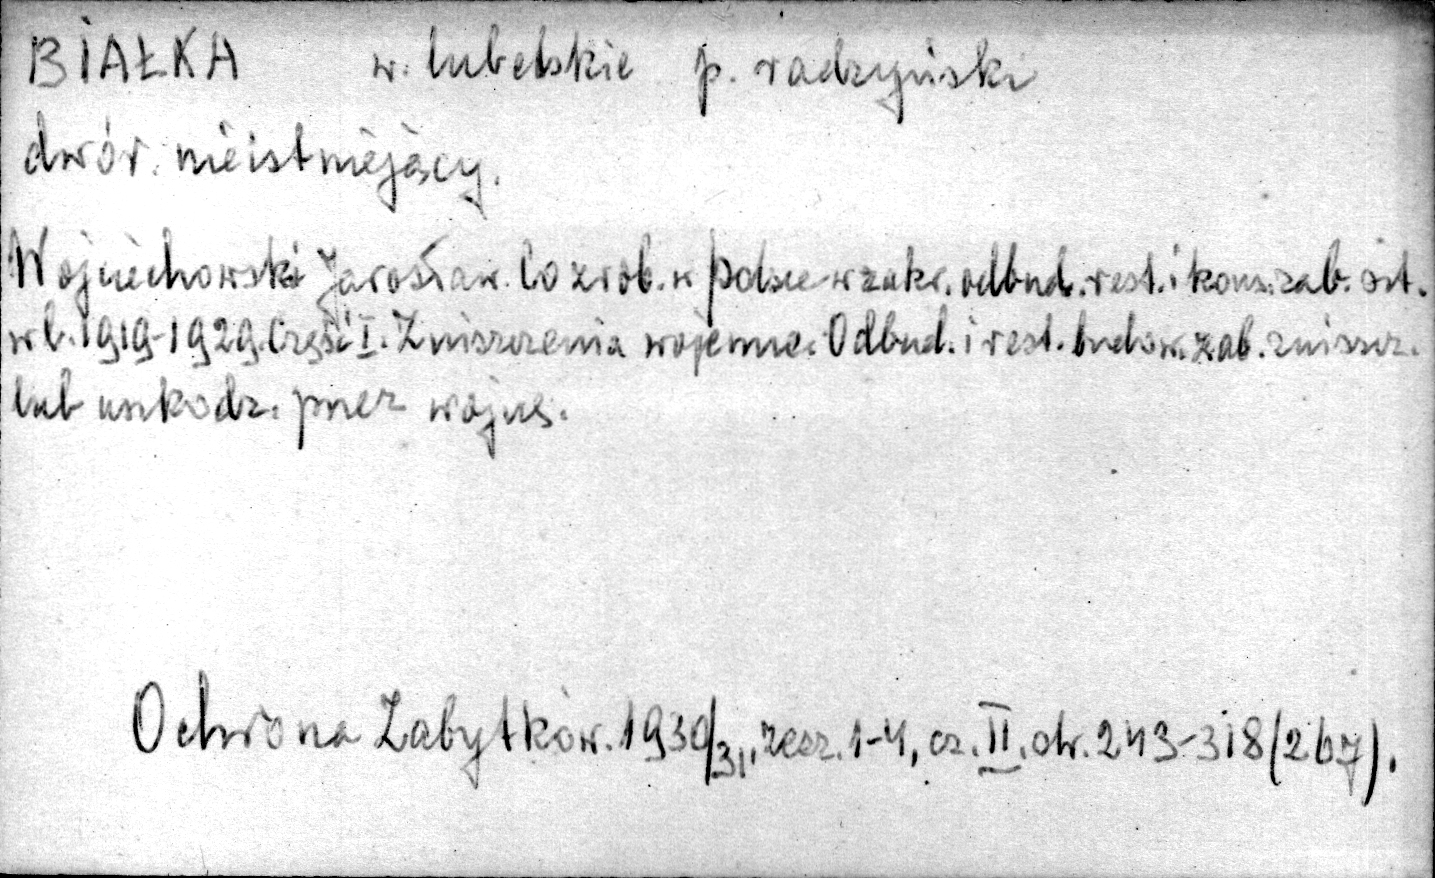 BIAŁKA w. lubelskie p. radzyński
dwór. nieistniejący.
Wojciechowski Jarosław. Co zrob. w Polsce w zakr. odbud. rest. i kons. zab. szt.
w l. 1919-1929. Część I. Zniszczenia wojenne. Odbud. i rest. budow. zab. zniszcz.
lub uszkodz. przez wojnę.
Ochrona Zabytków. 1930/31, zesz. 1-4, cz. II, str. 243-318 (267).